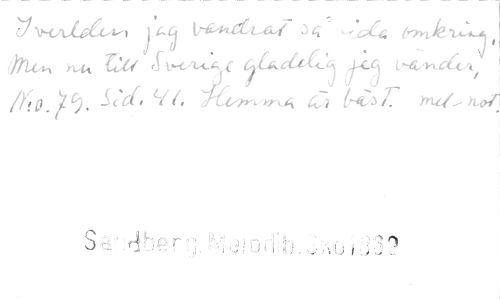 I verlden jag vandrat så vida omkring,
Men nu till Sverige gladelig jag vänder,
N:o. 79. Sid. 41. Hemma är bäst. mel-not.
Sandberg. Melodib. Sko 1869